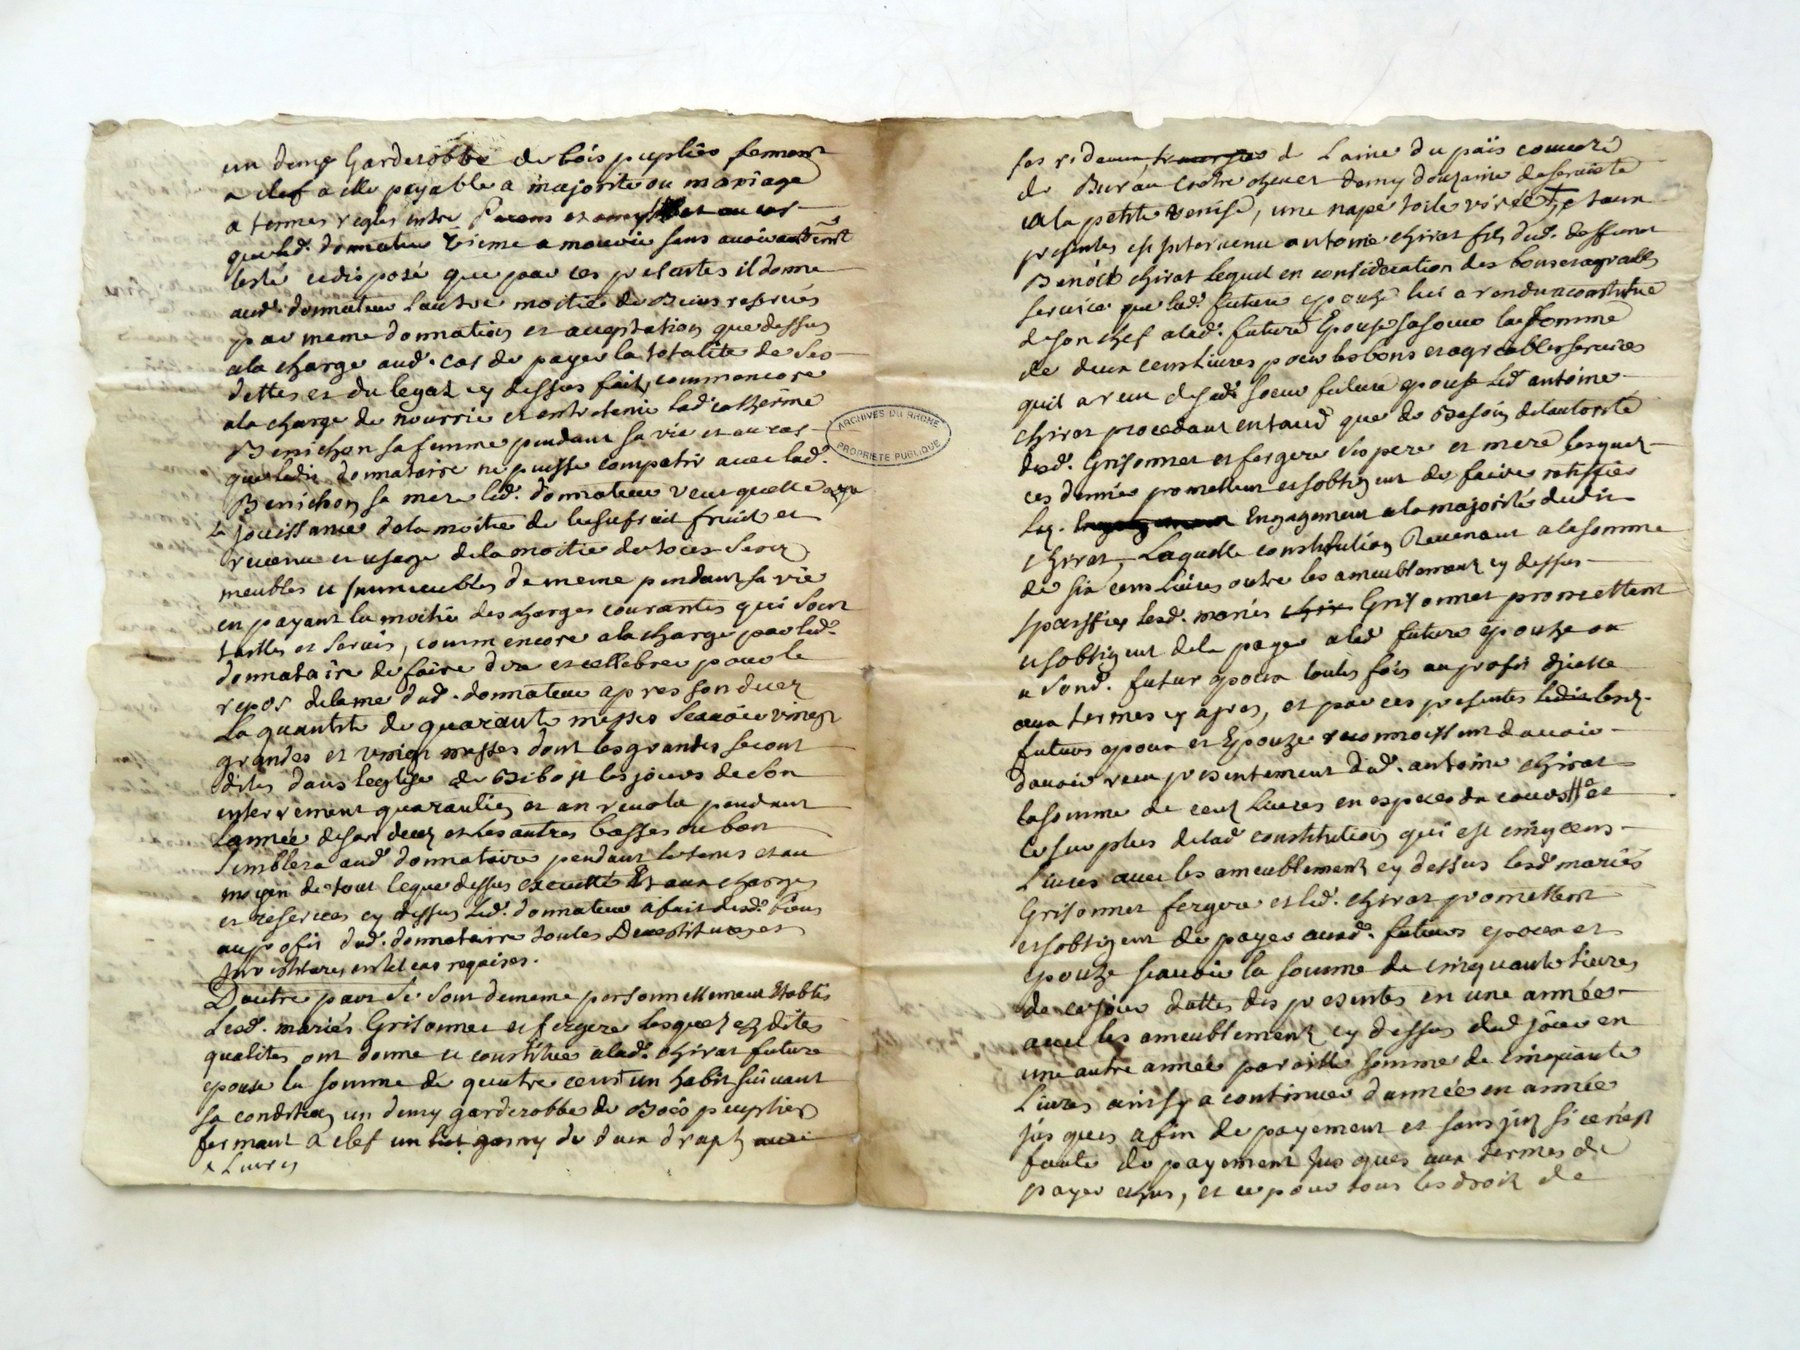 un demy Garderobbe de bois puplier fermant
a clef a elle payable a majorite ou mariage
a termes reglés entre Parens et amys et au cas
que led. donnateur vienne a mourir sans avoir autremt
testé et disposé que par ces presentes il donne
aud. donnateur l'autre moitié de Biens reservés
par meme donnation et acceptation que dessus
ala charge aud. cas de payer la totalite de ses
dettes et du legat cy dessus fait, comm encore
ala charge de nourrir et entretenir lad. catherine
Benichon sa femme pendant sa vie et au cas
que ledit donnataire ne puisse compatir avec lad.
Benichon sa mere led. donnateur veut quelle aye
la jouissance dela moitié de lusufruit fruit et
revenu et usage dela moitié de tous ses
meubles et immeubles de meme pendant sa vie
en payant la moitié des charges courantes qui sont
tailles et servis, comm encore ala charge par led.
donnataire de faire dire et cellebrer pour le
repos de lame dud. donnateur apres son decez
La quantité de quarante messes scavoir vingt
grandes et vingt messes dont les grandes seront
dites dans leglise de Bibost les jours de son
enterrement quarantin et an revolu pendant
lannée de son decez et les autres basses ou bon
semblera aud. donnataire pendant le tems et au
moyen de tout leque dessus execuité Et aux charges
et reserves cy dessus led. donnateur a fait desd. biens
au profit dud. donnataire toutes Devestitures et
Investitures en tel cas requises.
Dautre part se sont dememe personnellement Etablis
Lesd. mariés Grisonnet et fergere lesquelz ez dites
qualites ont donne et constitué alad. chirat future
epouse la somme de quatre cent un habit suivant
sa condition un demy garderobbe de Bois puplier
fermant a clef un lict garny de deux draps
livres
ses rideaux de Laine du païs couverte
de Bureau Coetre chevet demy douzaine de serviette
ala petite venise, une nape toile
presentes est Intervenu antoine chirat fils dud. deffunct
Benoict chirat lequel en consideration des bons et agreables
service que lad. future epouze lui a rendu a constitué
de son chef alad. future Epouse sa soeur la somme
de deux cent livres pour les bons et agreables services
quil a reçu de sad. soeur future epouse led. antoine
chirat procedant entant que de Besoin de lautorité
desd. Grisonnet et fergere ses pere et mere lesquels
ces dernie promettent et sobligent de faire ratiffier
Engagement ala majorité dudit
chirat, Laquelle constitution Revenant ala somme
de six cent Livres outre les ameublement cy dessus
speciffiez lesd. mariés Grisonnet promettent
et sobligent dela payer alad future epouze ou
a sond. futur epoux toutes fois au profit dicelle
aux termes cy apres, et par ces presentes lesd.
futurs epoux et Epouze reconnoissent davoir
davoir reçu presentement dud. antoine chirat
la somme de cent Livres en especes de cours
le surplus delad constitution qui est cinq cens
Livres avec les ameublement cy dessus lesd mariés
Grisonnet fergere et led. chirat promettent
et sobligent de payer ausd. futurs epoux et
epouze scavoir la somme de cinquante livres
de ce jour datte des presentes en une année
avec les ameublement cy dessus dud jour en
une autre année pareille somme de cinquante
Livres ainsy a continuer dannée en année
jusques afin de payement et sans jnt si ce nest
faute de payement jusques aux termes de
payer echus, et ce pour tous les droits de
ARCHIVES DU RHÔNE
PROPRIÉTÉ PUBLIQUE